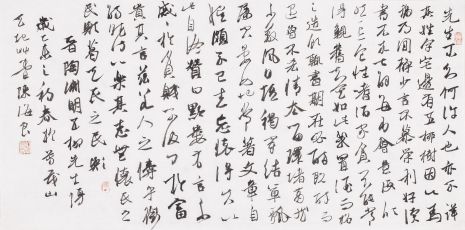 先生不知何許人也亦不詳
其姓字宅邊有五柳樹因以爲
號焉閑靜少言不慕榮利好讀
書不求甚解每有會意便欣
然忘食性嗜酒家貧不能常
得親舊知其如此或置酒而招
之造飲輒盡期在必醉既醉而
退曾不吝情去留環堵蕭然
不蔽風日短褐穿結簞瓢
屢空晏如也常著文章自
娛頗示己志忘懷得失以
此自終贊曰黔婁有言不
戚戚於貧賤不汲汲於富
貴其言茲若人之儔乎銜
觴賦詩以樂其志無懷氏之
民歟葛天氏之民歟
晉陶淵明五柳先生傳
之初春於黃山
陳海良